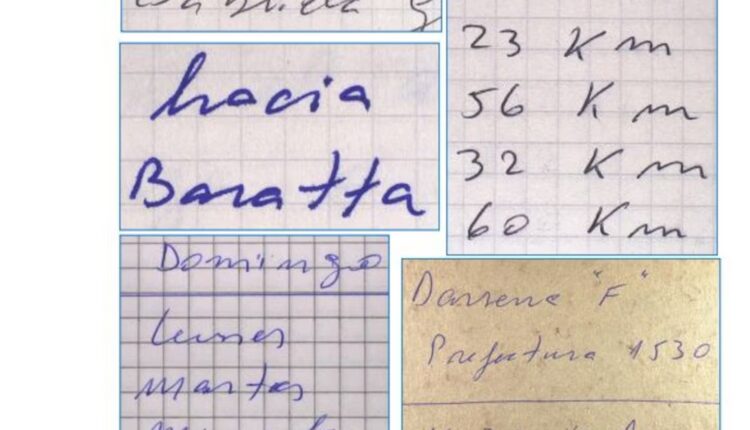 hacia
Baratta
23 Km
56 Km
32 Km
60 Km
Domingo
lunes
martes
Darsena "F"
Prefectura 1530